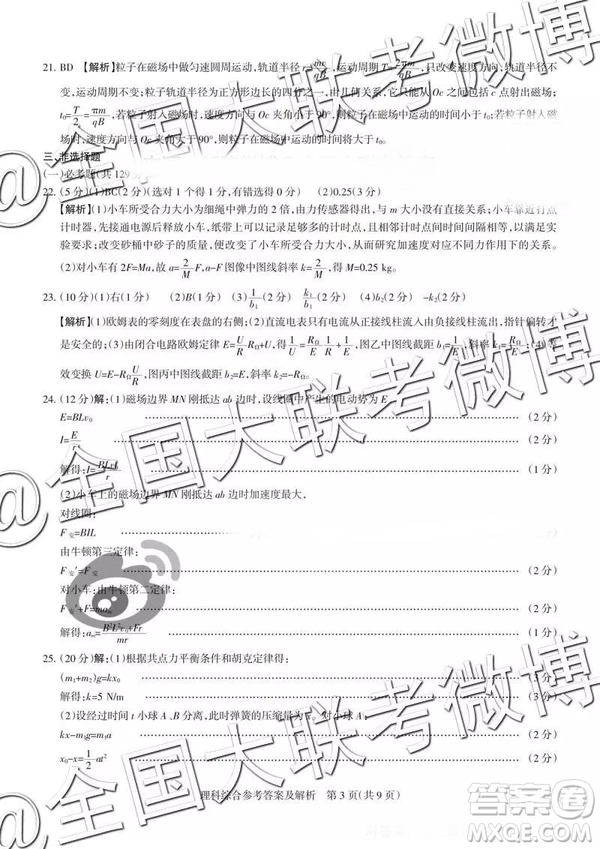 21. BD 【解析】粒子在磁场中做匀速圆周运动,轨道半径 r=mv/qB,运动周期 T=2πm/qB,只改变速度方向,轨道半径不
变,运动周期不变;轨道半径为正方形边长的四分之一,由几何关系,粒子可能从 c 点射出磁场;
t₀=T/2=πm/qB,若粒子射入磁场时,速度方向与 Oc 夹角小于 90°,则粒子在磁场中运动的时间小于 t₀;若粒子射入
磁场时,速度方向与 Oc 夹角大于 90°,则粒子在磁场中运动的时间将大于 t₀。
三、非选择题
(一)必考题(共 129 分)
22. (5 分)(1)BC(2 分)(选对 1 个得 1 分,有错选得 0 分) (2)0.25(3 分)
【解析】(1)小车所受合力大小为细绳中弹力的 2 倍,由力传感器读出,与 m 大小没有直接关系;小车靠近打点
计时器,先接通电源后释放小车,纸带上可以记录足够多的计时点,且相邻计时点间时间间隔相等,以满足实
验要求;改变砂桶中砂子的质量,便改变了小车所受合力大小,从而研究加速度对应不同力作用下的关系。
(2)对小车有 2F=Ma,故 a=2/M F,a-F 图像中图线斜率 k=2/M,得 M=0.25 kg。
23. (10 分)(1)右(1 分) (2)B(2 分) (3)1/b₁ k₁/b₁ (4)b₂ -k₂(2 分)
【解析】(1)欧姆表的零刻度在表盘的右侧;(2)直流电表只有电流从正接线柱流入负接线柱流出,指针偏转才
是安全的;(3)由闭合电路欧姆定律 E=U/R R_Ω+U,得1/U=R_Ω/E·1/R+1/E,图乙中图线截距 b₁=1/E,斜率 k₁=R_Ω/E;(4)等
效变换 U=E-R_Ω U/R,图丙中图线截距 b₂=E,斜率-k₂=-R_Ω。
24. (12 分)解:(1)磁场边界 MN 刚抵达 ab 边时,设线圈中产生的电动势为 E
E=BLv₀ (2 分)
I=E/r (2 分)
解得:I=BLv₀/r (1 分)
(2)小车上的磁场边界 MN 刚抵达 ab 边时加速度最大,
对线圈:
F安=BIL (2 分)
由牛顿第三定律:
F安′=F安 (2 分)
对小车:由牛顿第二定律:
F安′+F=ma (2 分)
解得:aₘ=B²L²v₀+Fr/mr (1 分)
25. (20 分)解:(1)根据共点力平衡条件和胡克定律得:
(m₁+m₂)g=kx₀ (2 分)
解得:k=5 N/m (3 分)
(2)设经过时间 t 小球 A、B 分离,此时弹簧的压缩量为 x。对小球 A:
kx-m₁g=m₁a (2 分)
x₀-x=1/2 at² (2 分)
理科综合参考答案及解析 第 3 页(共 9 页)
@全国大联考微博
@全国大联考微博
@全国大联考微博
答案圈